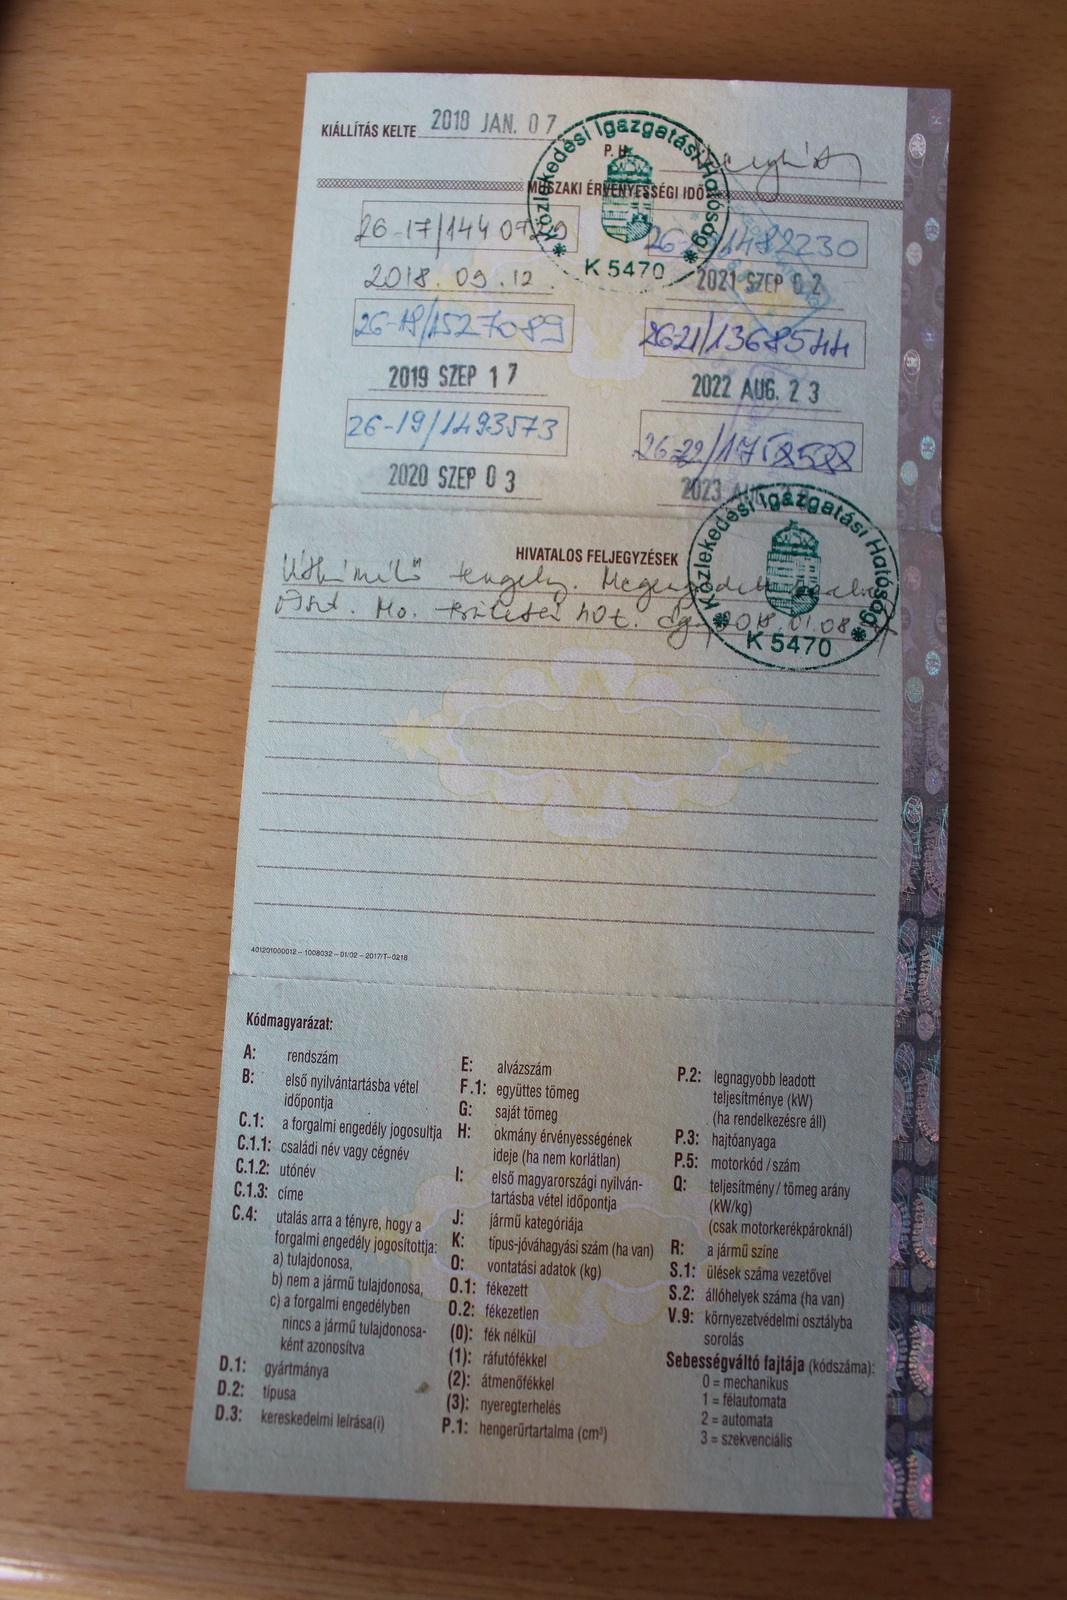 KIÁLLÍTÁS KELTE 2018 JAN. 07
P. H.
Közlekedési Igazgatási Hatóság
K 5470
MŰSZAKI ÉRVÉNYESSÉGI IDŐ
26-17/144
2018. 09. 12.
2021 SZEP 02
26-18/1527089
2621/1368544
2019 SZEP 17
2022 AUG. 23
26-19/1493573
2020 SZEP 03
2023 AUG
HIVATALOS FELJEGYZÉSEK
Közlekedési Igazgatási Hatóság
K 5470
tengely.
Mo. 2018.01.08
401201000012 – 1008032 – 01/02 – 2017/T–0218
Kódmagyarázat:
A: rendszám
B: első nyilvántartásba vétel
időpontja
C.1: a forgalmi engedély jogosultja
C.1.1: családi név vagy cégnév
C.1.2: utónév
C.1.3: címe
C.4: utalás arra a tényre, hogy a
forgalmi engedély jogosítottja:
a) tulajdonosa,
b) nem a jármű tulajdonosa,
c) a forgalmi engedélyben
nincs a jármű tulajdonosa-
ként azonosítva
D.1: gyártmánya
D.2: típusa
D.3: kereskedelmi leírása(i)
E: alvázszám
F.1: együttes tömeg
G: saját tömeg
H: okmány érvényességének
ideje (ha nem korlátlan)
I: első magyarországi nyilván-
tartásba vétel időpontja
J: jármű kategóriája
K: típus-jóváhagyási szám (ha van)
O: vontatási adatok (kg)
O.1: fékezett
O.2: fékezetlen
(0): fék nélkül
(1): ráfutófékkel
(2): átmenőfékkel
(3): nyeregterhelés
P.1: hengerűrtartalma (cm³)
P.2: legnagyobb leadott
teljesítménye (kW)
(ha rendelkezésre áll)
P.3: hajtóanyaga
P.5: motorkód / szám
Q: teljesítmény / tömeg arány
(kW/kg)
(csak motorkerékpároknál)
R: a jármű színe
S.1: ülések száma vezetővel
S.2: állóhelyek száma (ha van)
V.9: környezetvédelmi osztályba
sorolás
Sebességváltó fajtája (kódszáma):
0 = mechanikus
1 = félautomata
2 = automata
3 = szekvenciális